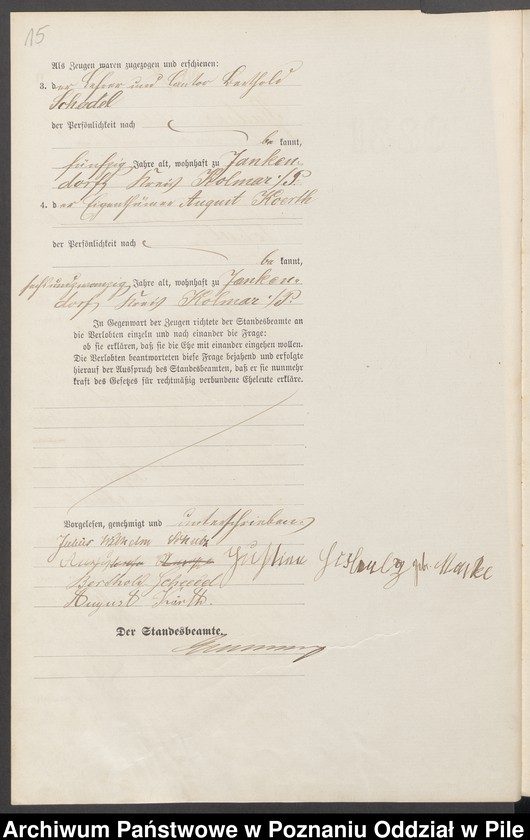 15
Als Zeugen waren zugezogen und erschienen:
3. der Lehrer und Cantor Berthold
Schedel
der Persönlichkeit nach
be kannt,
fünfzig Jahre alt, wohnhaft zu Janken-
dorf, Kreis Kolmar i/P.
4. der Eigenthümer August Koerth
der Persönlichkeit nach
be kannt,
sechsundzwanzig Jahre alt, wohnhaft zu Janken-
dorf, Kreis Kolmar i/P.
In Gegenwart der Zeugen richtete der Standesbeamte an
die Verlobten einzeln und nach einander die Frage:
ob sie erklären, daß sie die Ehe mit einander eingehen wollen.
Die Verlobten beantworteten diese Frage bejahend und erfolgte
hierauf der Ausspruch des Standesbeamten, daß er sie nunmehr
kraft des Gesetzes für rechtmäßig verbundene Eheleute erkläre.
Vorgelesen, genehmigt und unterschrieben
Julius Wilhelm Schulz
Justine geb. Manke
Berthold Schedel
August
Der Standesbeamte.
Archiwum Państwowe w Poznaniu Oddział w Pile